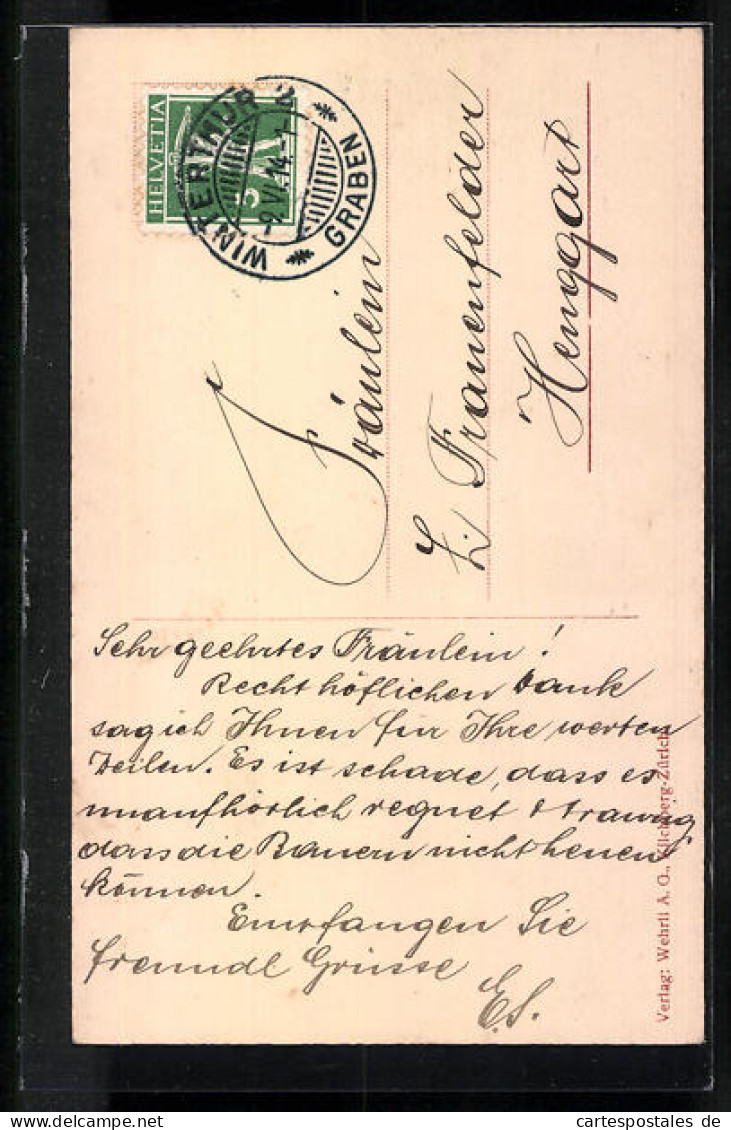 HELVETIA
5
WINTERTHUR 2
-9.VI.14.-1
GRABEN
Fräulein
Frauenfelder
Henggart
Sehr geehrtes Fräulein!
Recht höflichen Dank
sag ich Ihnen für Ihre werten
Zeilen. Es ist schade, dass es
unaufhörlich regnet & traurig
dass die Bauern nicht heuen
können.
Empfangen Sie
freundl Grüsse
E.S.
Verlag: Wehrli A. G., Kilchberg-Zürich
cartespostales de